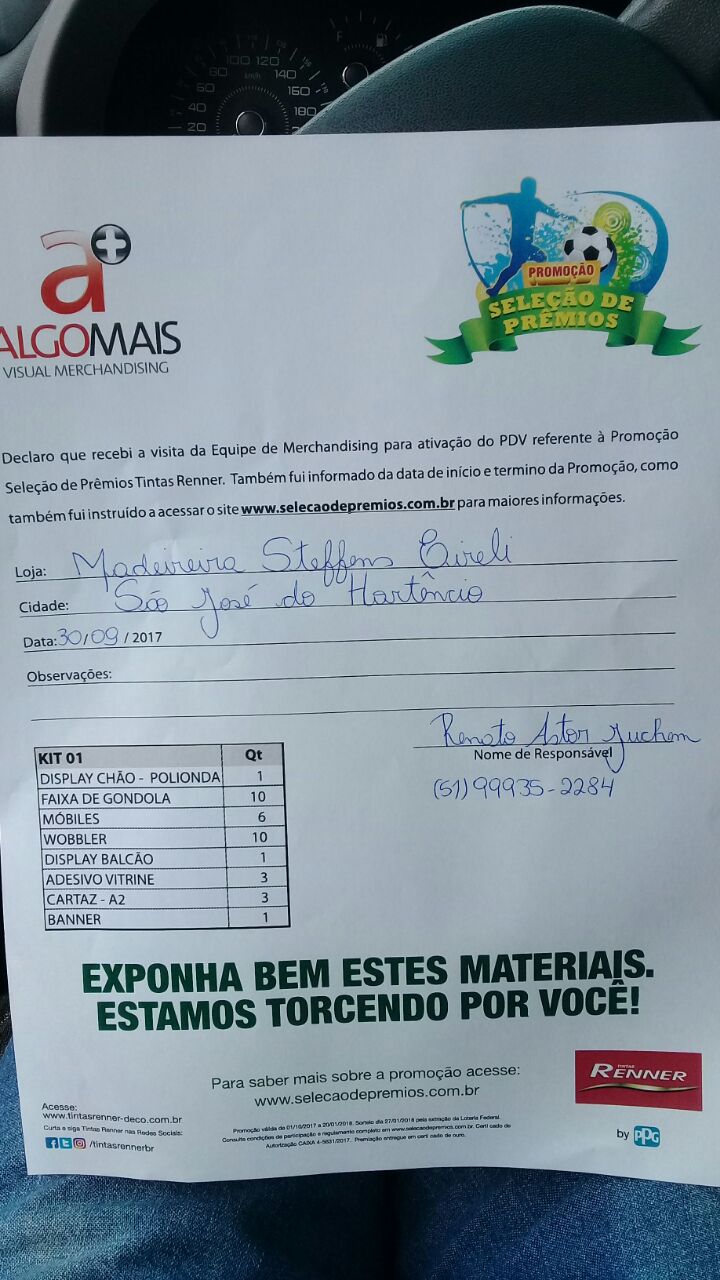 F
100 120
80 km/h 140
60 160
40 180
20
a+
ALGOMAIS
VISUAL MERCHANDISING
PROMOÇÃO
SELEÇÃO DE
PRÊMIOS
Declaro que recebi a visita da Equipe de Merchandising para ativação do PDV referente à Promoção
Seleção de Prêmios Tintas Renner. Também fui informado da data de início e termino da Promoção, como
também fui instruído a acessar o site www.selecaodepremios.com.br para maiores informações.
Loja: Madeireira Steffens Eireli
Cidade: São José do Hortêncio
Data: 30/09/2017
Observações:
Renato Astor Juchem
Nome de Responsável
(51) 99935-2284
KIT 01 Qt
DISPLAY CHÃO - POLIONDA 1
FAIXA DE GONDOLA 10
MÓBILES 6
WOBBLER 10
DISPLAY BALCÃO 1
ADESIVO VITRINE 3
CARTAZ - A2 3
BANNER 1
EXPONHA BEM ESTES MATERIAIS.
ESTAMOS TORCENDO POR VOCÊ!
Para saber mais sobre a promoção acesse:
www.selecaodepremios.com.br
TINTAS
RENNER
by PPG
Acesse:
www.tintasrenner-deco.com.br
Curta e siga Tintas Renner nas Redes Sociais:
/tintasrennerbr
Promoção válida de 01/10/2017 a 20/01/2018. Sorteio dia 27/01/2018 pela extração da Loteria Federal.
Consulte condições de participação e regulamento completo em www.selecaodepremios.com.br. Certificado de
Autorização CAIXA 4-5631/2017. Premiação entregue em certificado de ouro.